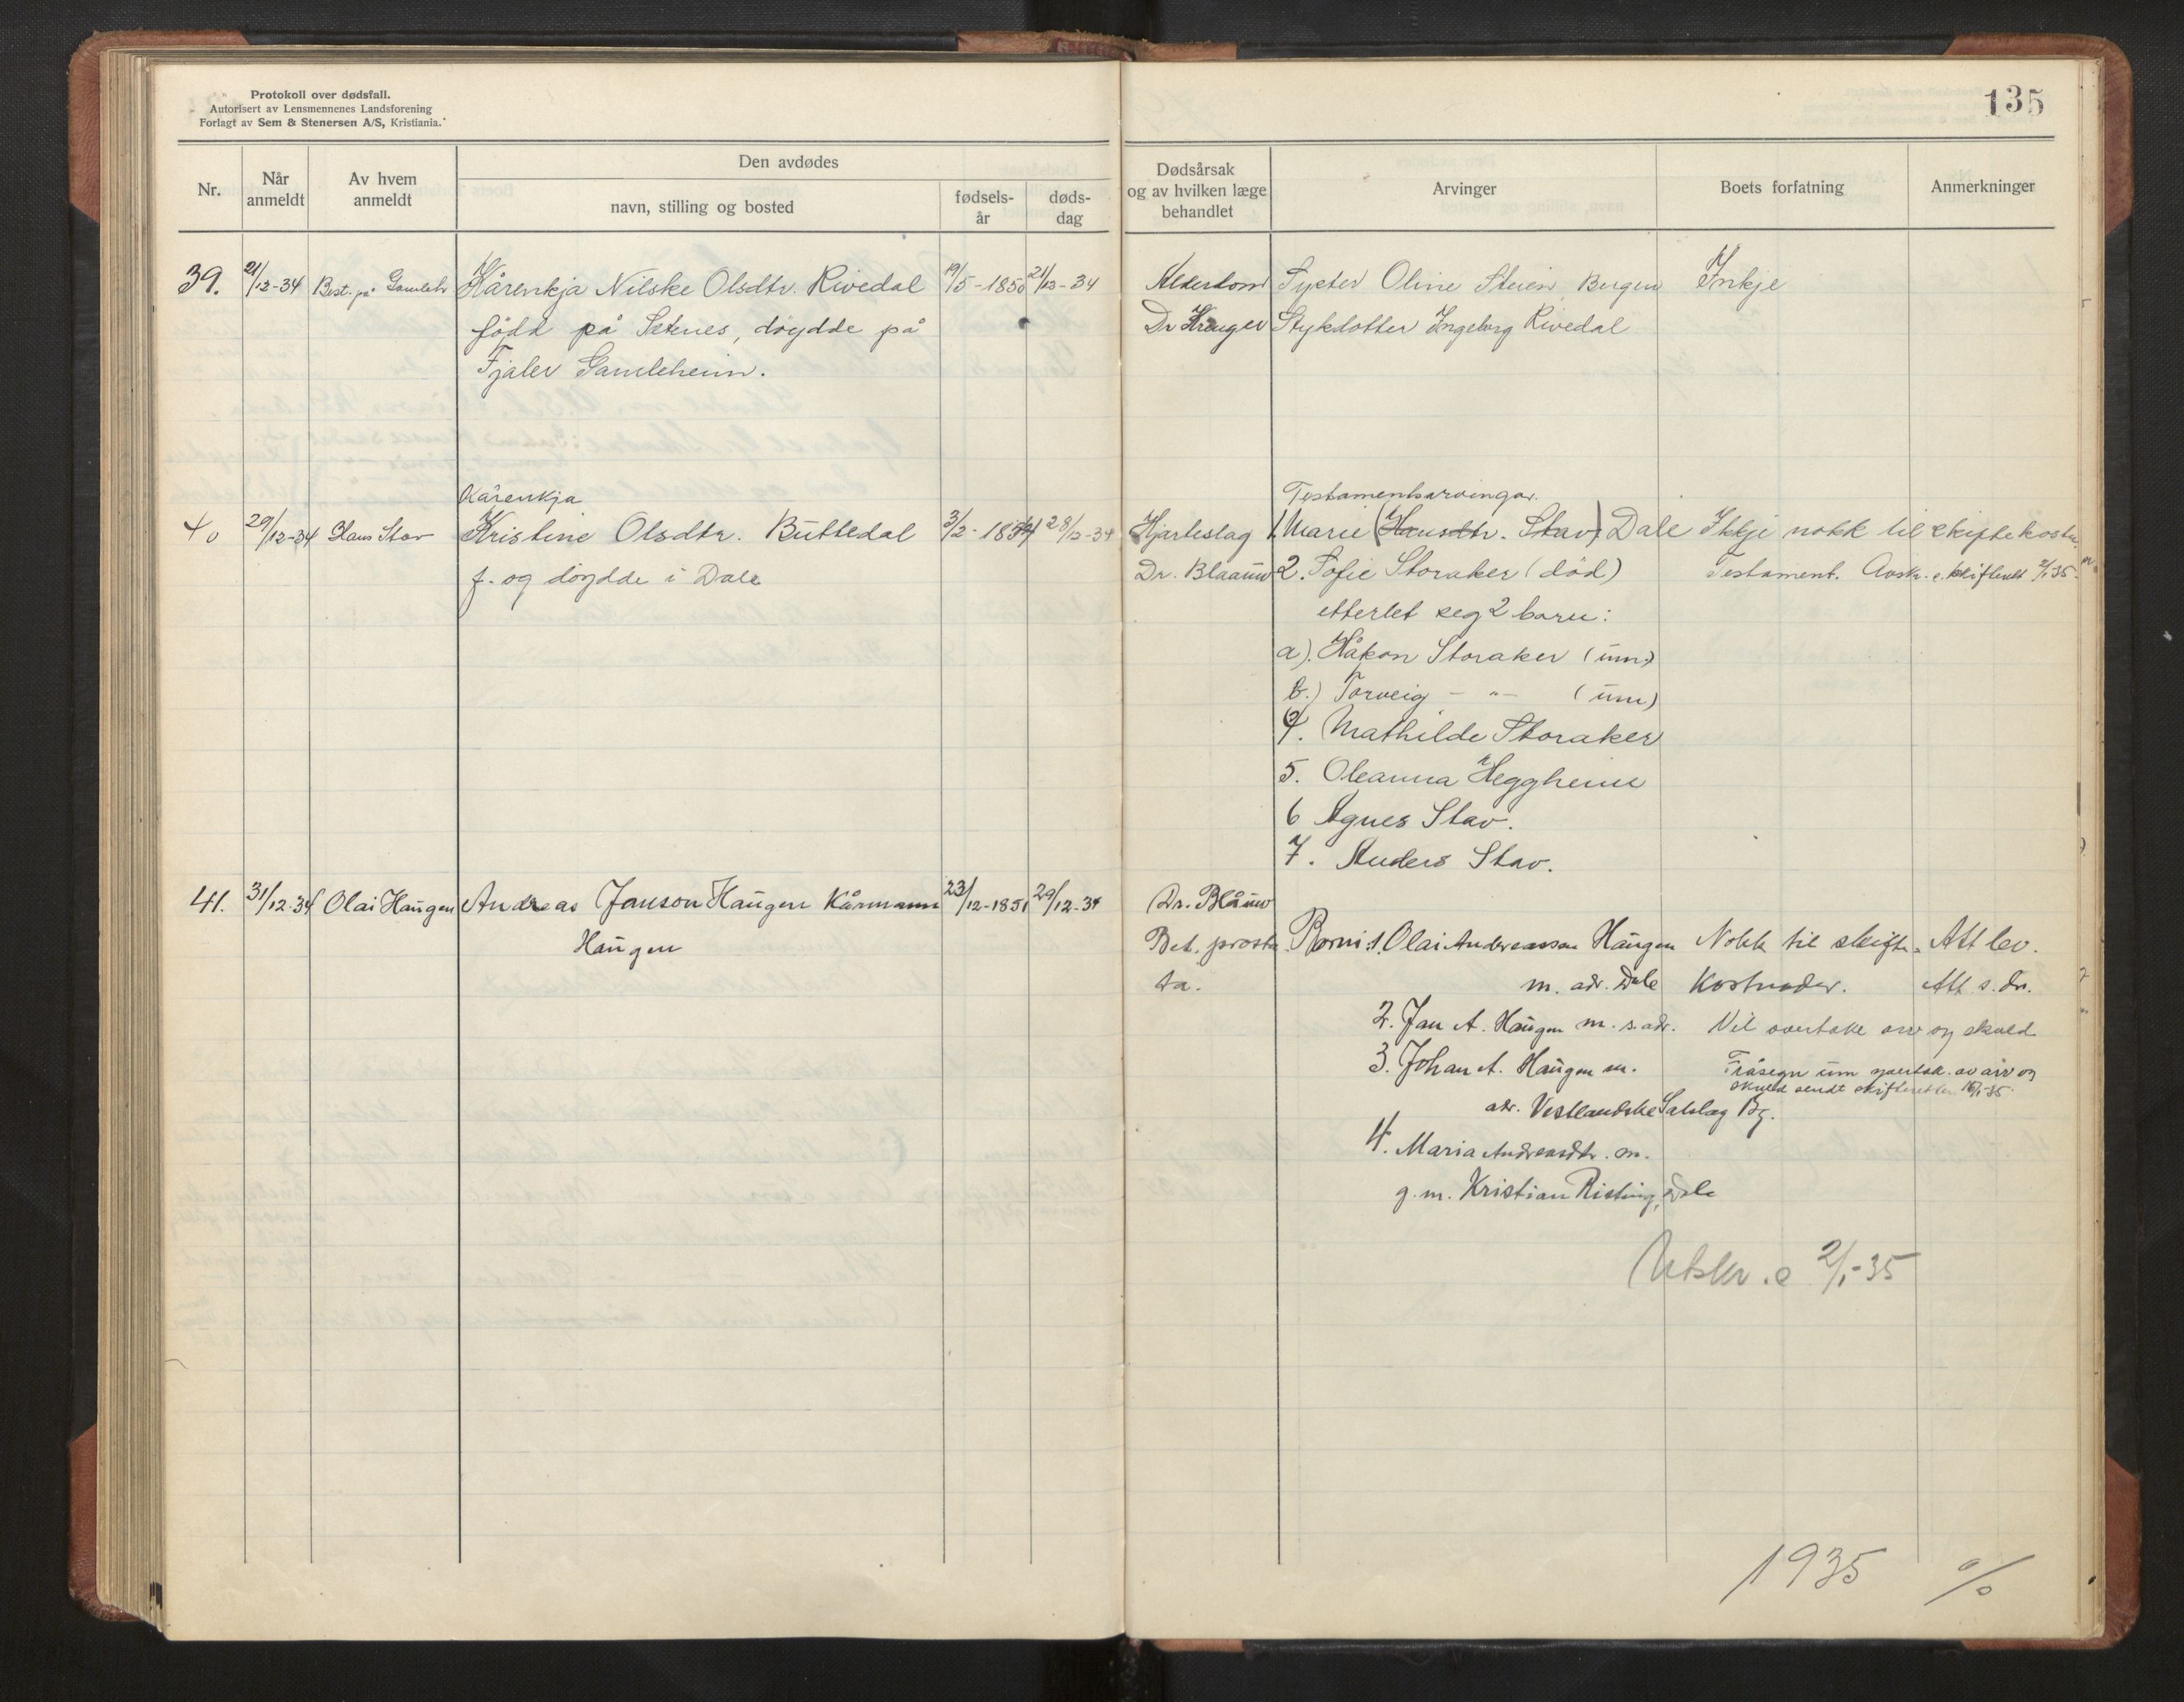 Protokoll over dødsfall.
Autorisert av Lensmennenes Landsforening
Forlagt av Sem & Stenersen A/S, Kristiania.
135
Nr.
Når anmeldt
Av hvem anmeldt
Den avdødes
navn, stilling og bosted
fødsels-år
døds-dag
Dødsårsak og av hvilken læge behandlet
Arvinger
Boets forfatning
Anmerkninger
39. 21/12-34 Best. på Gamleh Kårenkja Nilske Olsdtr. Rivedal 19/5-1850 21/12-34 Alderdom Syster Oline Steien, Bergen Inkje
född på Setenes, döydde på Dr Kreuger Stykdotter Ingeborg Rivedal
Fjaler Gamleheim.
Kårenkja Testamentsarvingar.
40 29/12-34 Hans Stav Kristine Olsdtr. Buttedal 3/2-1854 28/12-34 Hjarteslag 1 Marie (Hansdtr. Stav) Dale Ikkje nokk til skiftekostn.
f. og döydde i Dale Dr. Blaauw 2. Sofie Storaker (död) Testament. Avskr. e. skifterett 2/1 35.
etterlet seg 2 barn:
a). Håkon Storaker (um)
b.) Torveig - " - (um)
4. Mathilde Storaker
5. Oleanna Heggheim
6 Agnes Stav.
7. Anders Stav.
41. 31/12-34 Olai Haugen Andreas Janson Haugen Kårmann 23/12-1851 29/12-34 Dr. Blåuw
Haugen Bet. prosta Borni: 1. Olai Andreasson Haugen Nokk til skifte- Att lev.
ta. m. adr. Dale Kostnader. Att s. dr.
2. Jan A. Haugen m. s. adr. Vil overtake arv og skuld
3. Johan A. Haugen m. Fråsegn um overtak. av arv og
skuld sendt skifteretten 16/1-35.
adr. Vestlandske Salslag Bg.
4. Maria Andreasdtr. m.
g. m. Kristian Risting, Dale
Utskr. e 2/1-35
1935 %